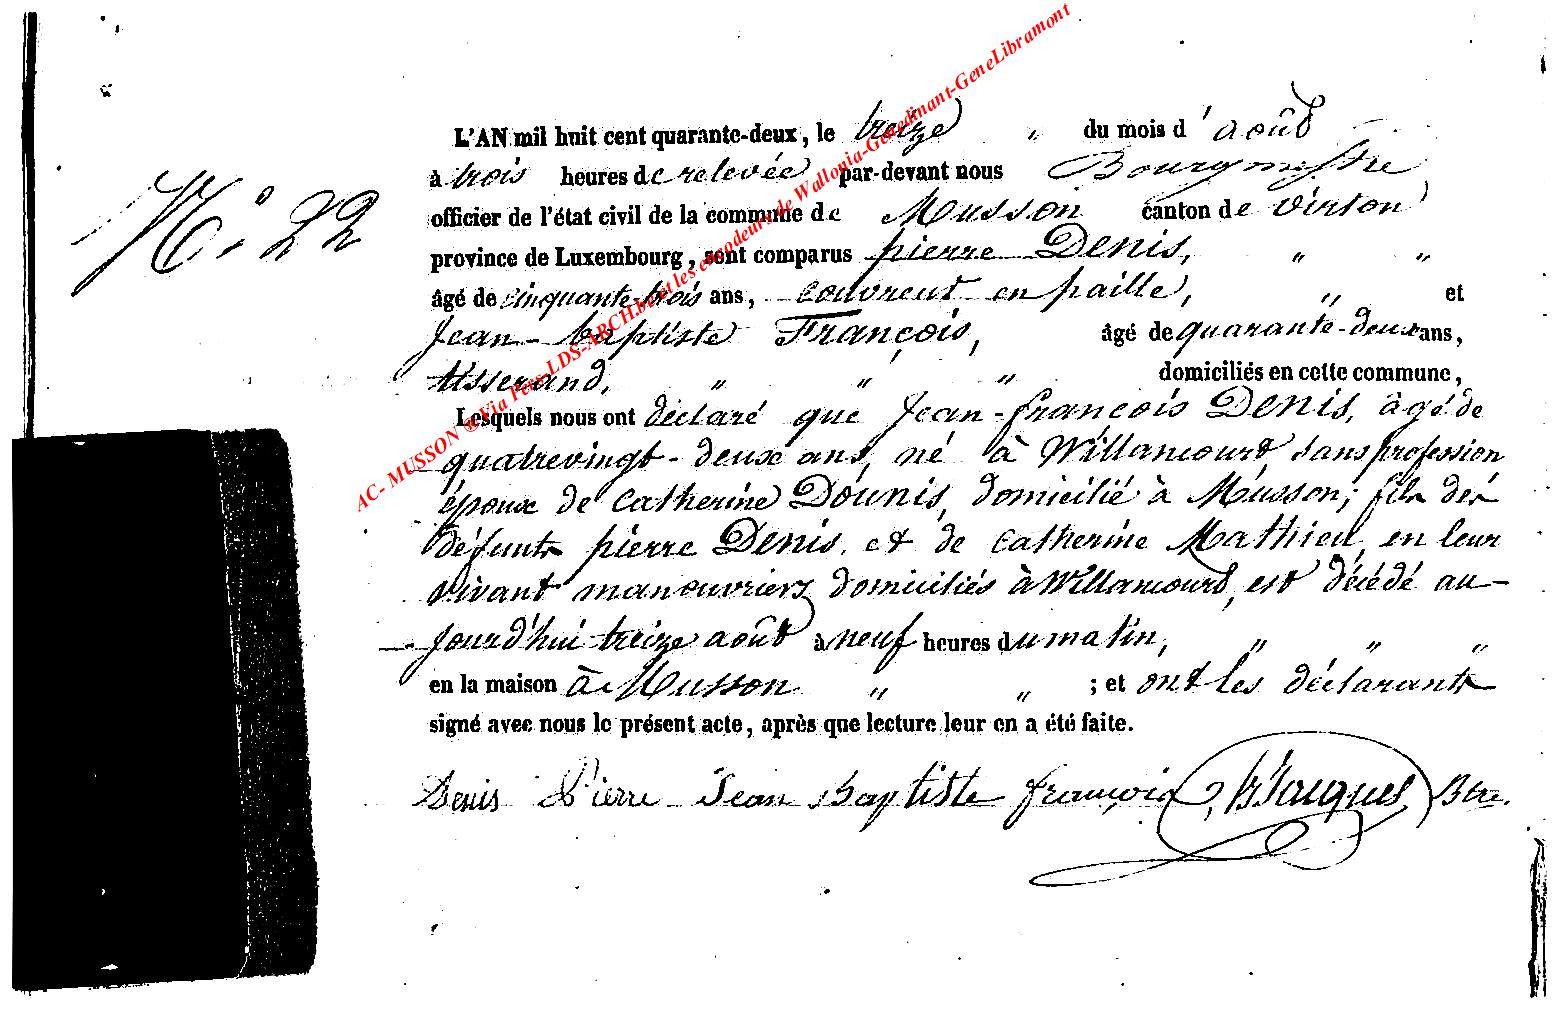 N.° 22
L'AN mil huit cent quarante-deux, le treize " du mois d' août
à trois heures de relevée par-devant nous Bourgmestre
officier de l'état civil de la commune de Musson canton de Virton
province de Luxembourg, sont comparus pierre Denis, " "
âgé de cinquante-trois ans, couvreur en paille, " et
Jean-baptiste François, âgé de quarante-deux ans,
tisserand, " " " domiciliés en cette commune,
Lesquels nous ont déclaré que Jean-françois Denis, âgé de
quatrevingt-deux ans, né à Willancourt, sans profession
époux de Catherine Dounis, domicilié à Musson; fils des
défunts pierre Denis, et de Catherine Mathieu, en leur
vivant manouvriers domiciliés à Willancourt, est décédé au-
jourd'hui treize août à neuf heures du matin, " " "
en la maison à Musson " " ; et ont les déclarants
signé avec nous le présent acte, après que lecture leur en a été faite.
Denis Pierre Jean Baptiste françois Jacques Btre.
AC- MUSSON ®Via Pers-LDS-ARCH.be et les encodeurs de Wallonia-Genedinant-GeneLibramont